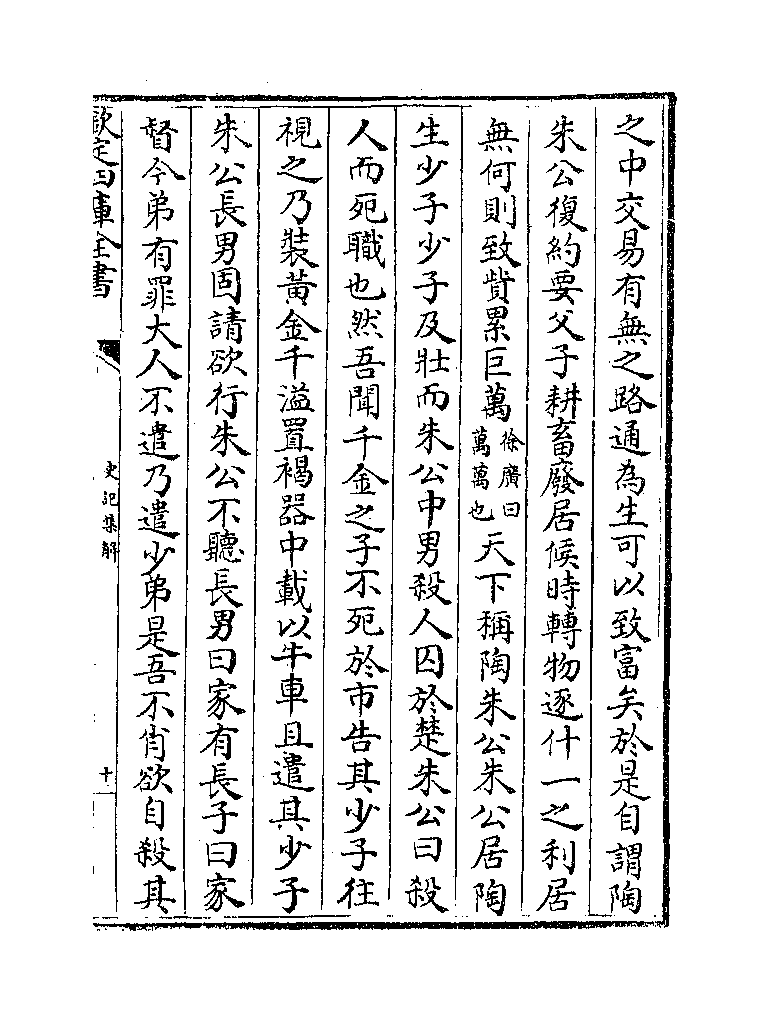 之中交易有無之路通為生可以致富矣於是自謂陶
朱公復約要父子耕畜廢居候時轉物逐什一之利居
無何則致貲累巨萬徐廣曰萬萬也天下稱陶朱公朱公居陶
生少子少子及壯而朱公中男殺人囚於楚朱公曰殺
人而死職也然吾聞千金之子不死於市告其少子往
視之乃裝黃金千溢置褐器中載以牛車且遣其少子
朱公長男固請欲行朱公不聽長男曰家有長子曰家
督今弟有罪大人不遣乃遣少弟是吾不肖欲自殺其
欽定四庫全書
史記集解
十